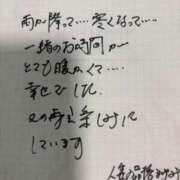 雨が降って‥‥寒くなって‥‥
一緒のお時間が
とても暖かくて‥‥
幸せでした。
又の再会楽しみに
しています